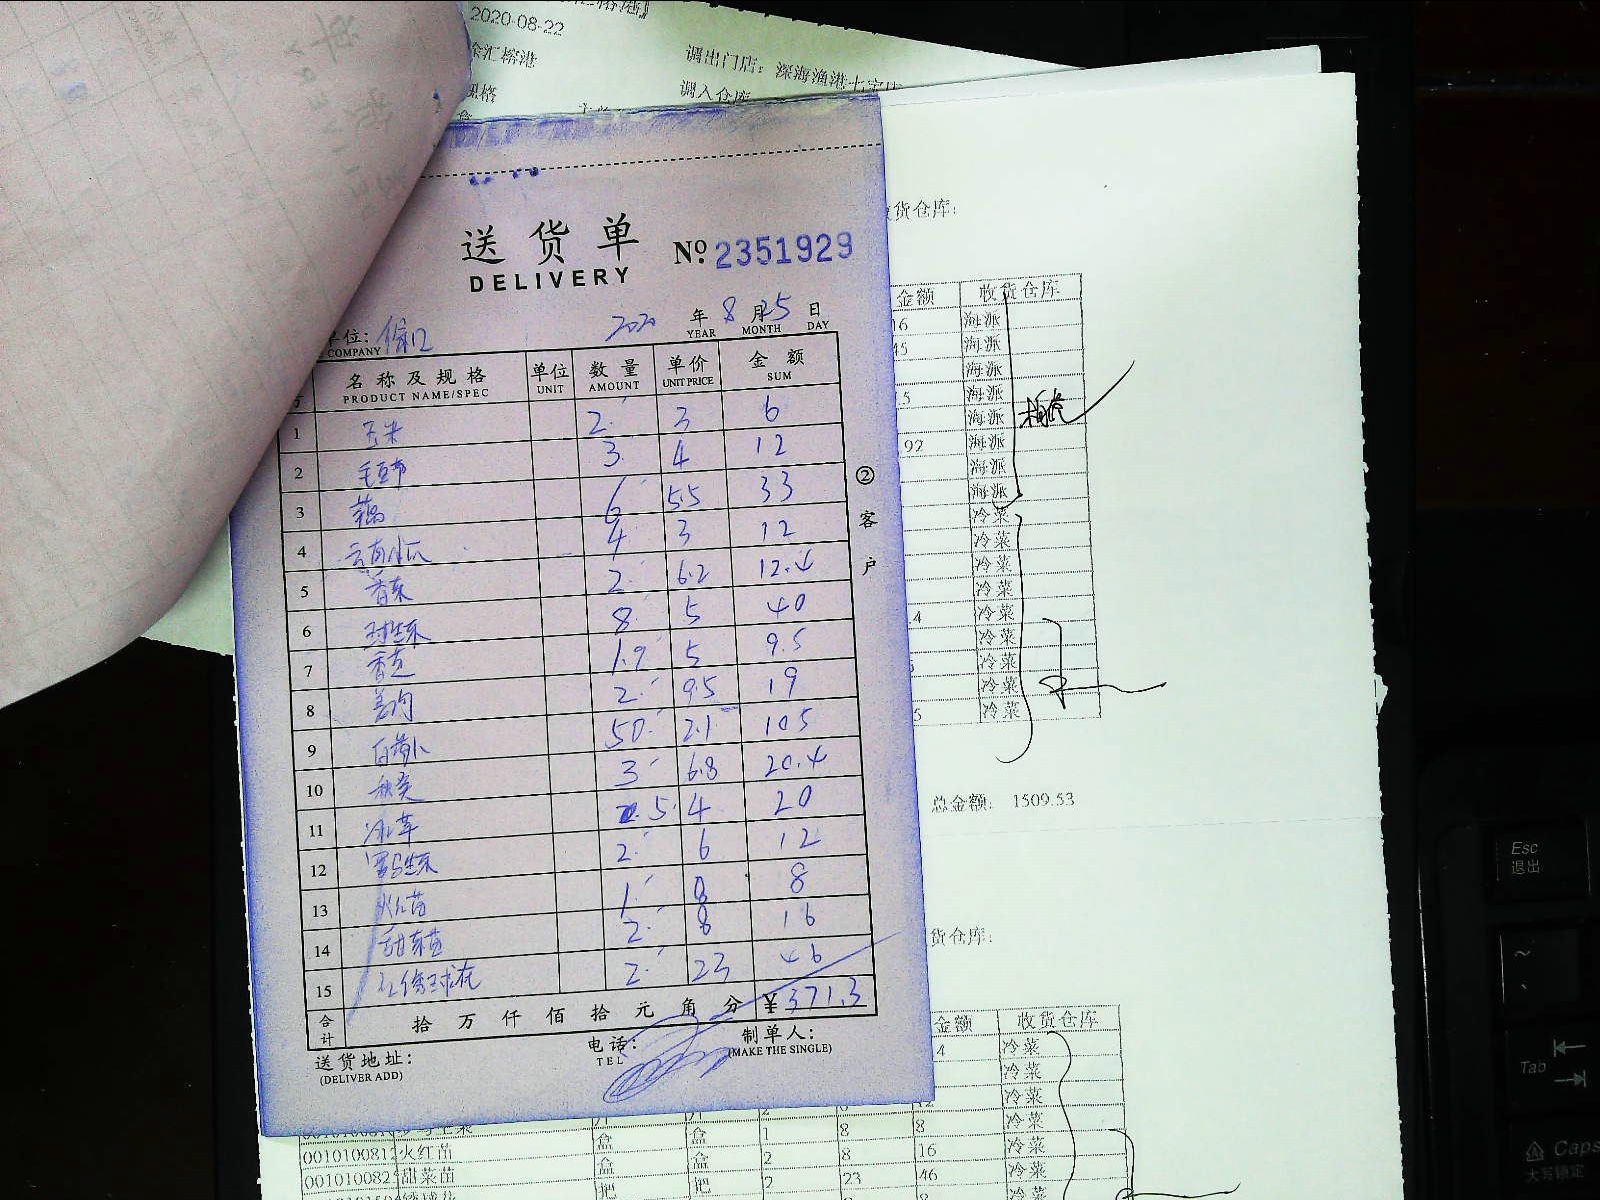 2020-08-22
调出门店：深海渔港七宝店
调入仓库
货仓库：
金额 收货仓库
16 海派
45 海派
海派
.5 海派
海派
.92 海派
海派
海派
冷菜
冷菜
冷菜
冷菜
.4 冷菜
冷菜
冷菜
冷菜
5 冷菜
总金额： 1509.53
货仓库：
金额 收货仓库
4 冷菜
冷菜
冷菜
8 8 冷菜
0010100812 火红苗 盒 盒 1 8 16 冷菜
0010100825 甜菜苗 盒 盒 2 23 46 冷菜
把 把 2
送货单 №: 2351929
DELIVERY
单位： 2020 年 8 月 25 日
COMPANY YEAR MONTH DAY
名称及规格 单位 数量 单价 金额
PRODUCT NAME/SPEC UNIT AMOUNT UNIT PRICE SUM
1 玉米 2 3 6
2 毛豆节 3 4 12
3 6 5.5 33
4 云南小瓜 4 3 12
5 香菜 2 6.2 12.4
6 球生菜 8 5 40
7 香芒 1.9 5 9.5
8 2 9.5 19
9 白萝卜 50 2.1 105
10 秋葵 3 6.8 20.4
11 冰草 5 4 20
12 罗马生菜 2 6 12
13 火红苗 1 8 8
14 甜菜苗 2 8 16
15 2 23 46
合计 拾 万 仟 佰 拾 元 角 分 ￥371.3
送货地址： 电话： 制单人：
(DELIVER ADD) TEL (MAKE THE SINGLE)
② 客户
Esc
退出
~
Tab
Caps
大写锁定